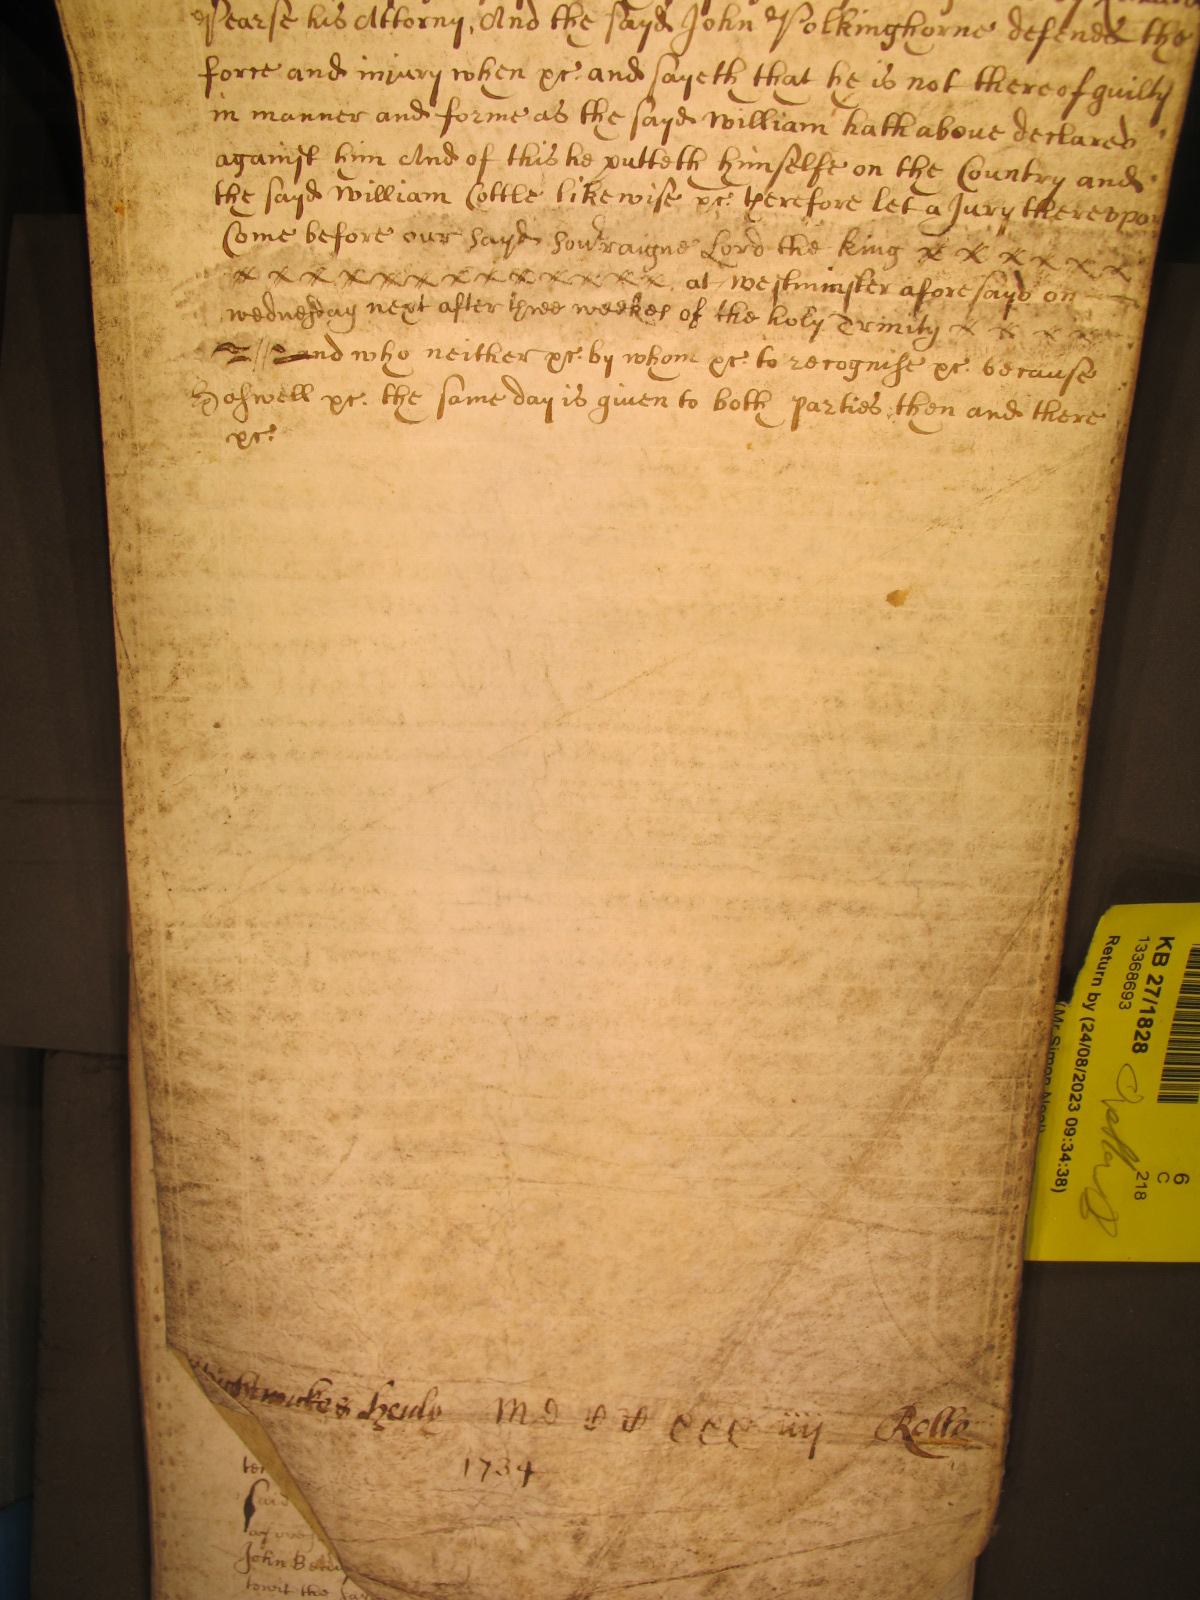 Pearse his Attorny, And the sayd John Polkinghorne defends the
force and injury when &c: and sayeth that he is not thereof guilty
in manner and forme as the sayd William hath above declared
against him And of this he putteth himselfe on the Country and
the sayd William Cottle likewise &c: therefore let a Jury thereupon
Come before our sayd Soveraigne Lord the King x x x x x x
x x x x x x x x x x x x x at Westminster aforesayd on
wednesday next after three weekes of the holy Trinity x x x x
and who neither &c: by whom &c: to recognise &c: because
aswell &c: the same day is given to both parties then and there
&c:
Hendy M D C C C C C iiij Rollo
1734
ter
Said
ay
John
towit the say
KB 27/1828
13368693
Return by (24/08/2023 09:34:38)
(Mr Simon Neal)
6
C
218